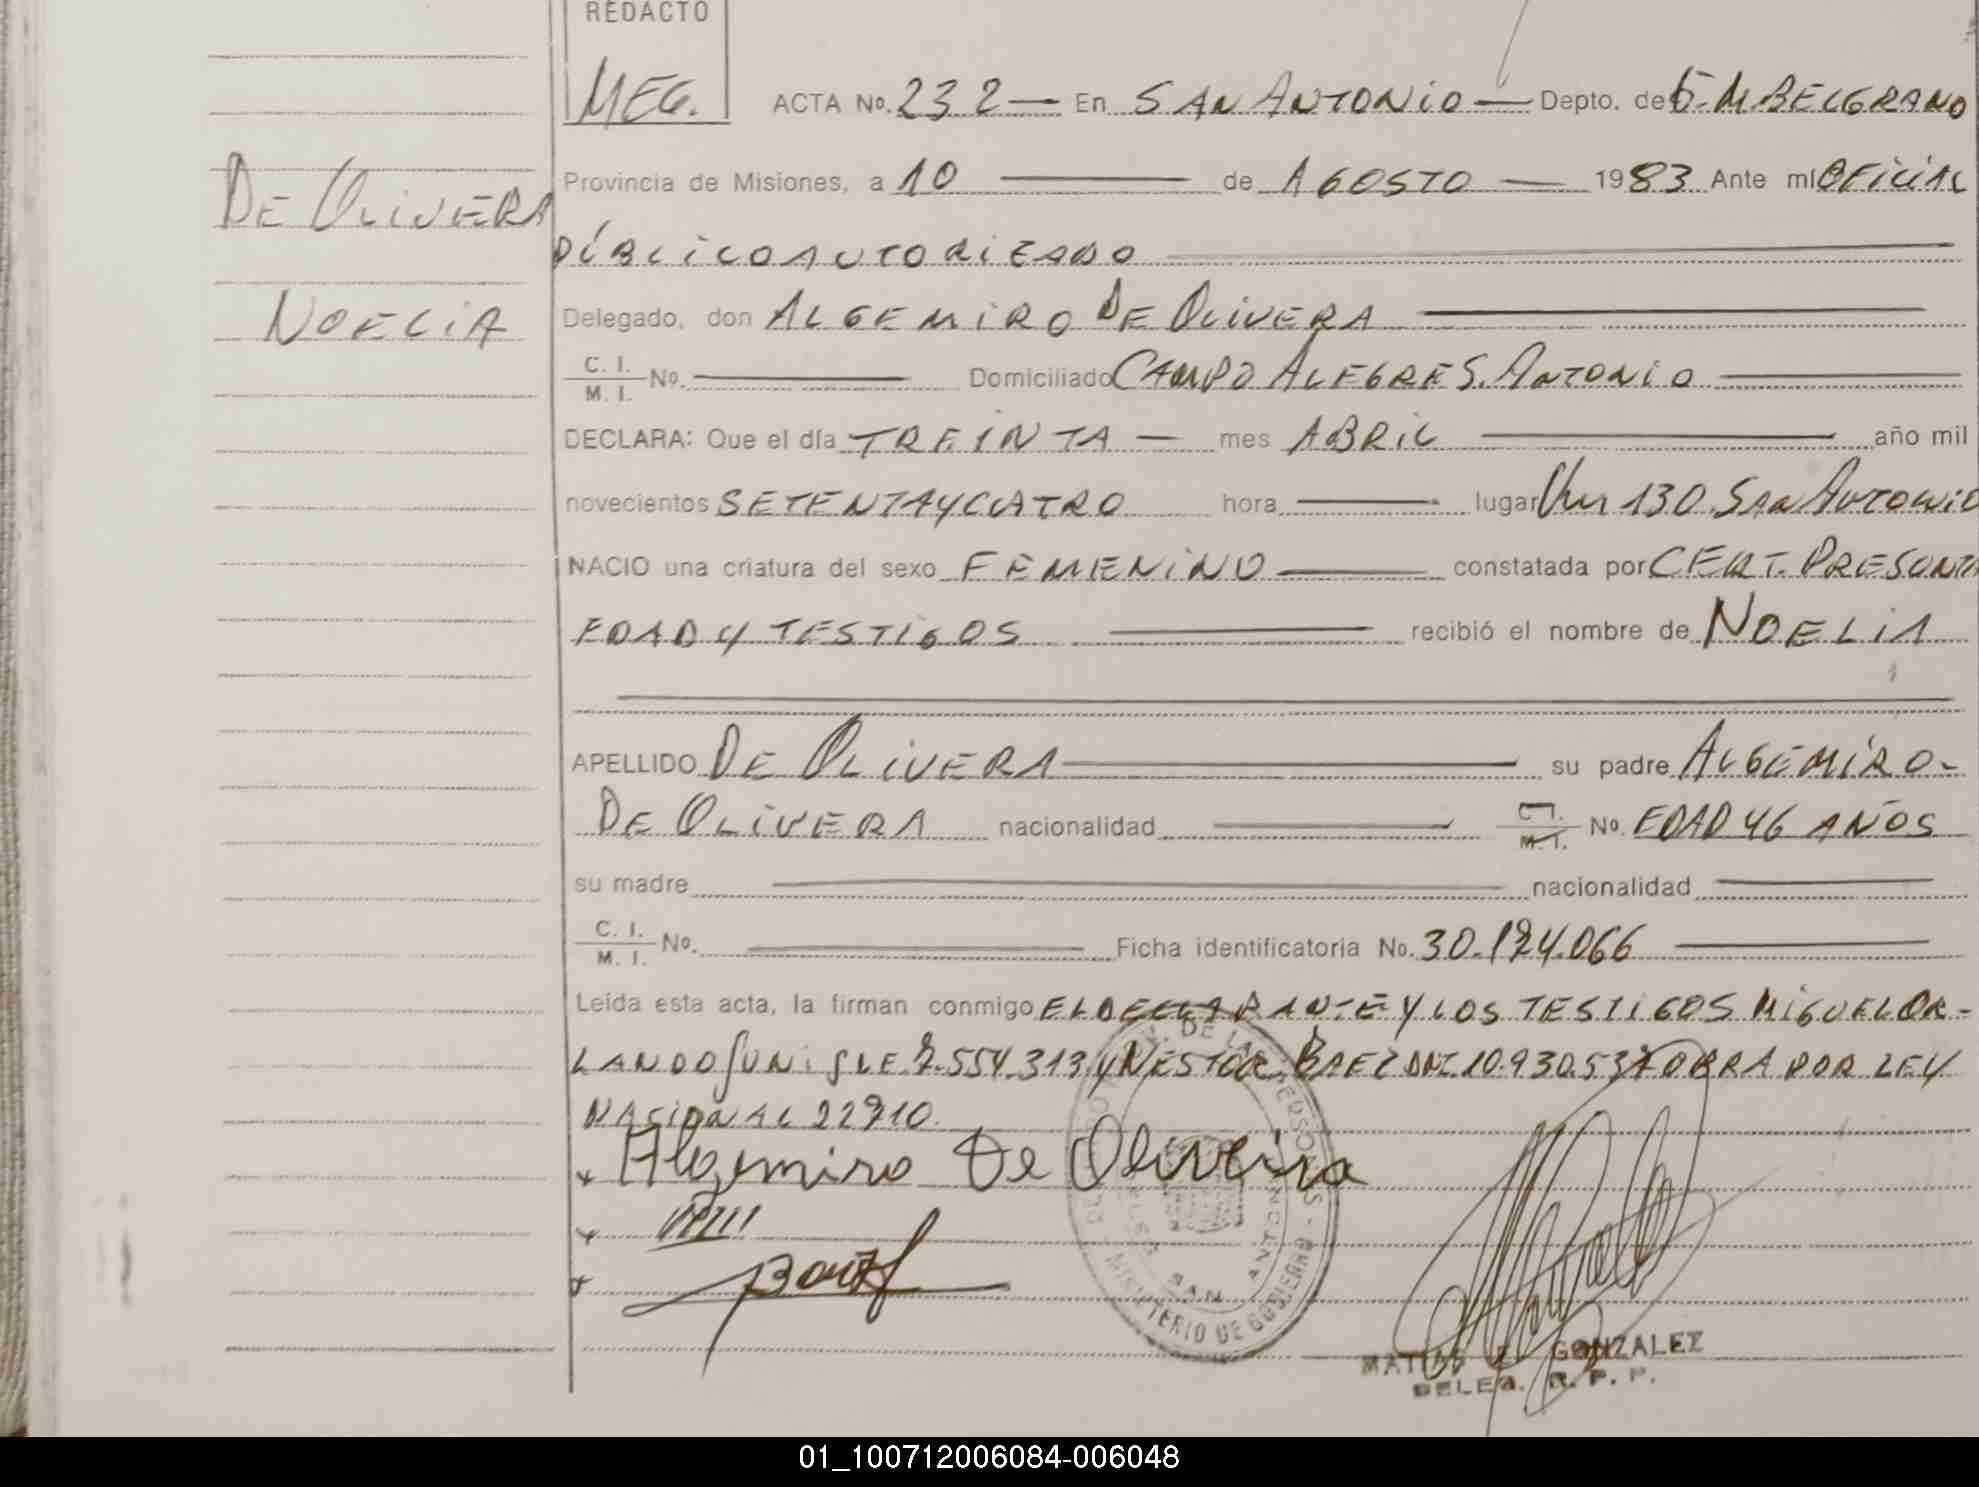 REDACTO
MEG.
ACTA No. 232 — En SAN ANTONIO — Depto. de G. M. BELGRANO
Provincia de Misiones, a 10 — de AGOSTO — 1983 Ante mí OFICIAL
PÚBLICO AUTORIZADO
DE OLIVERA
NOELIA
Delegado, don ALGEMIRO DE OLIVERA
C. I.
M. I. No. — Domiciliado CAMPO ALEGRE S. ANTONIO
DECLARA: Que el día TREINTA — mes ABRIL — año mil
novecientos SETENTA Y CUATRO hora — lugar Km 130. SAN ANTONIO
NACIO una criatura del sexo FEMENINO — constatada por CERT. PRESUNTA
EDAD Y TESTIGOS — recibió el nombre de NOELIA
APELLIDO DE OLIVERA — su padre ALGEMIRO-
DE OLIVERA nacionalidad — C. I.
M. I. No. EDAD 46 AÑOS
su madre — nacionalidad —
C. I.
M. I. No. — Ficha identificatoria No. 30.124.066 —
Leída esta acta, la firman conmigo EL DECLARANTE Y LOS TESTIGOS MIGUEL OR-
LANDO SUNI LE 7.554.313 y NESTOR BAEZ DNI. 10.930.537 OBRA POR LEY
NACIONAL 22910.
x Algemiro De Oliveira
x
x
DE LAS PERSONAS
MINISTERIO DE GOBIERNO
SAN ANTONIO
MATIAS GONZALEZ
DELEG. R. P. P.
01_100712006084-006048